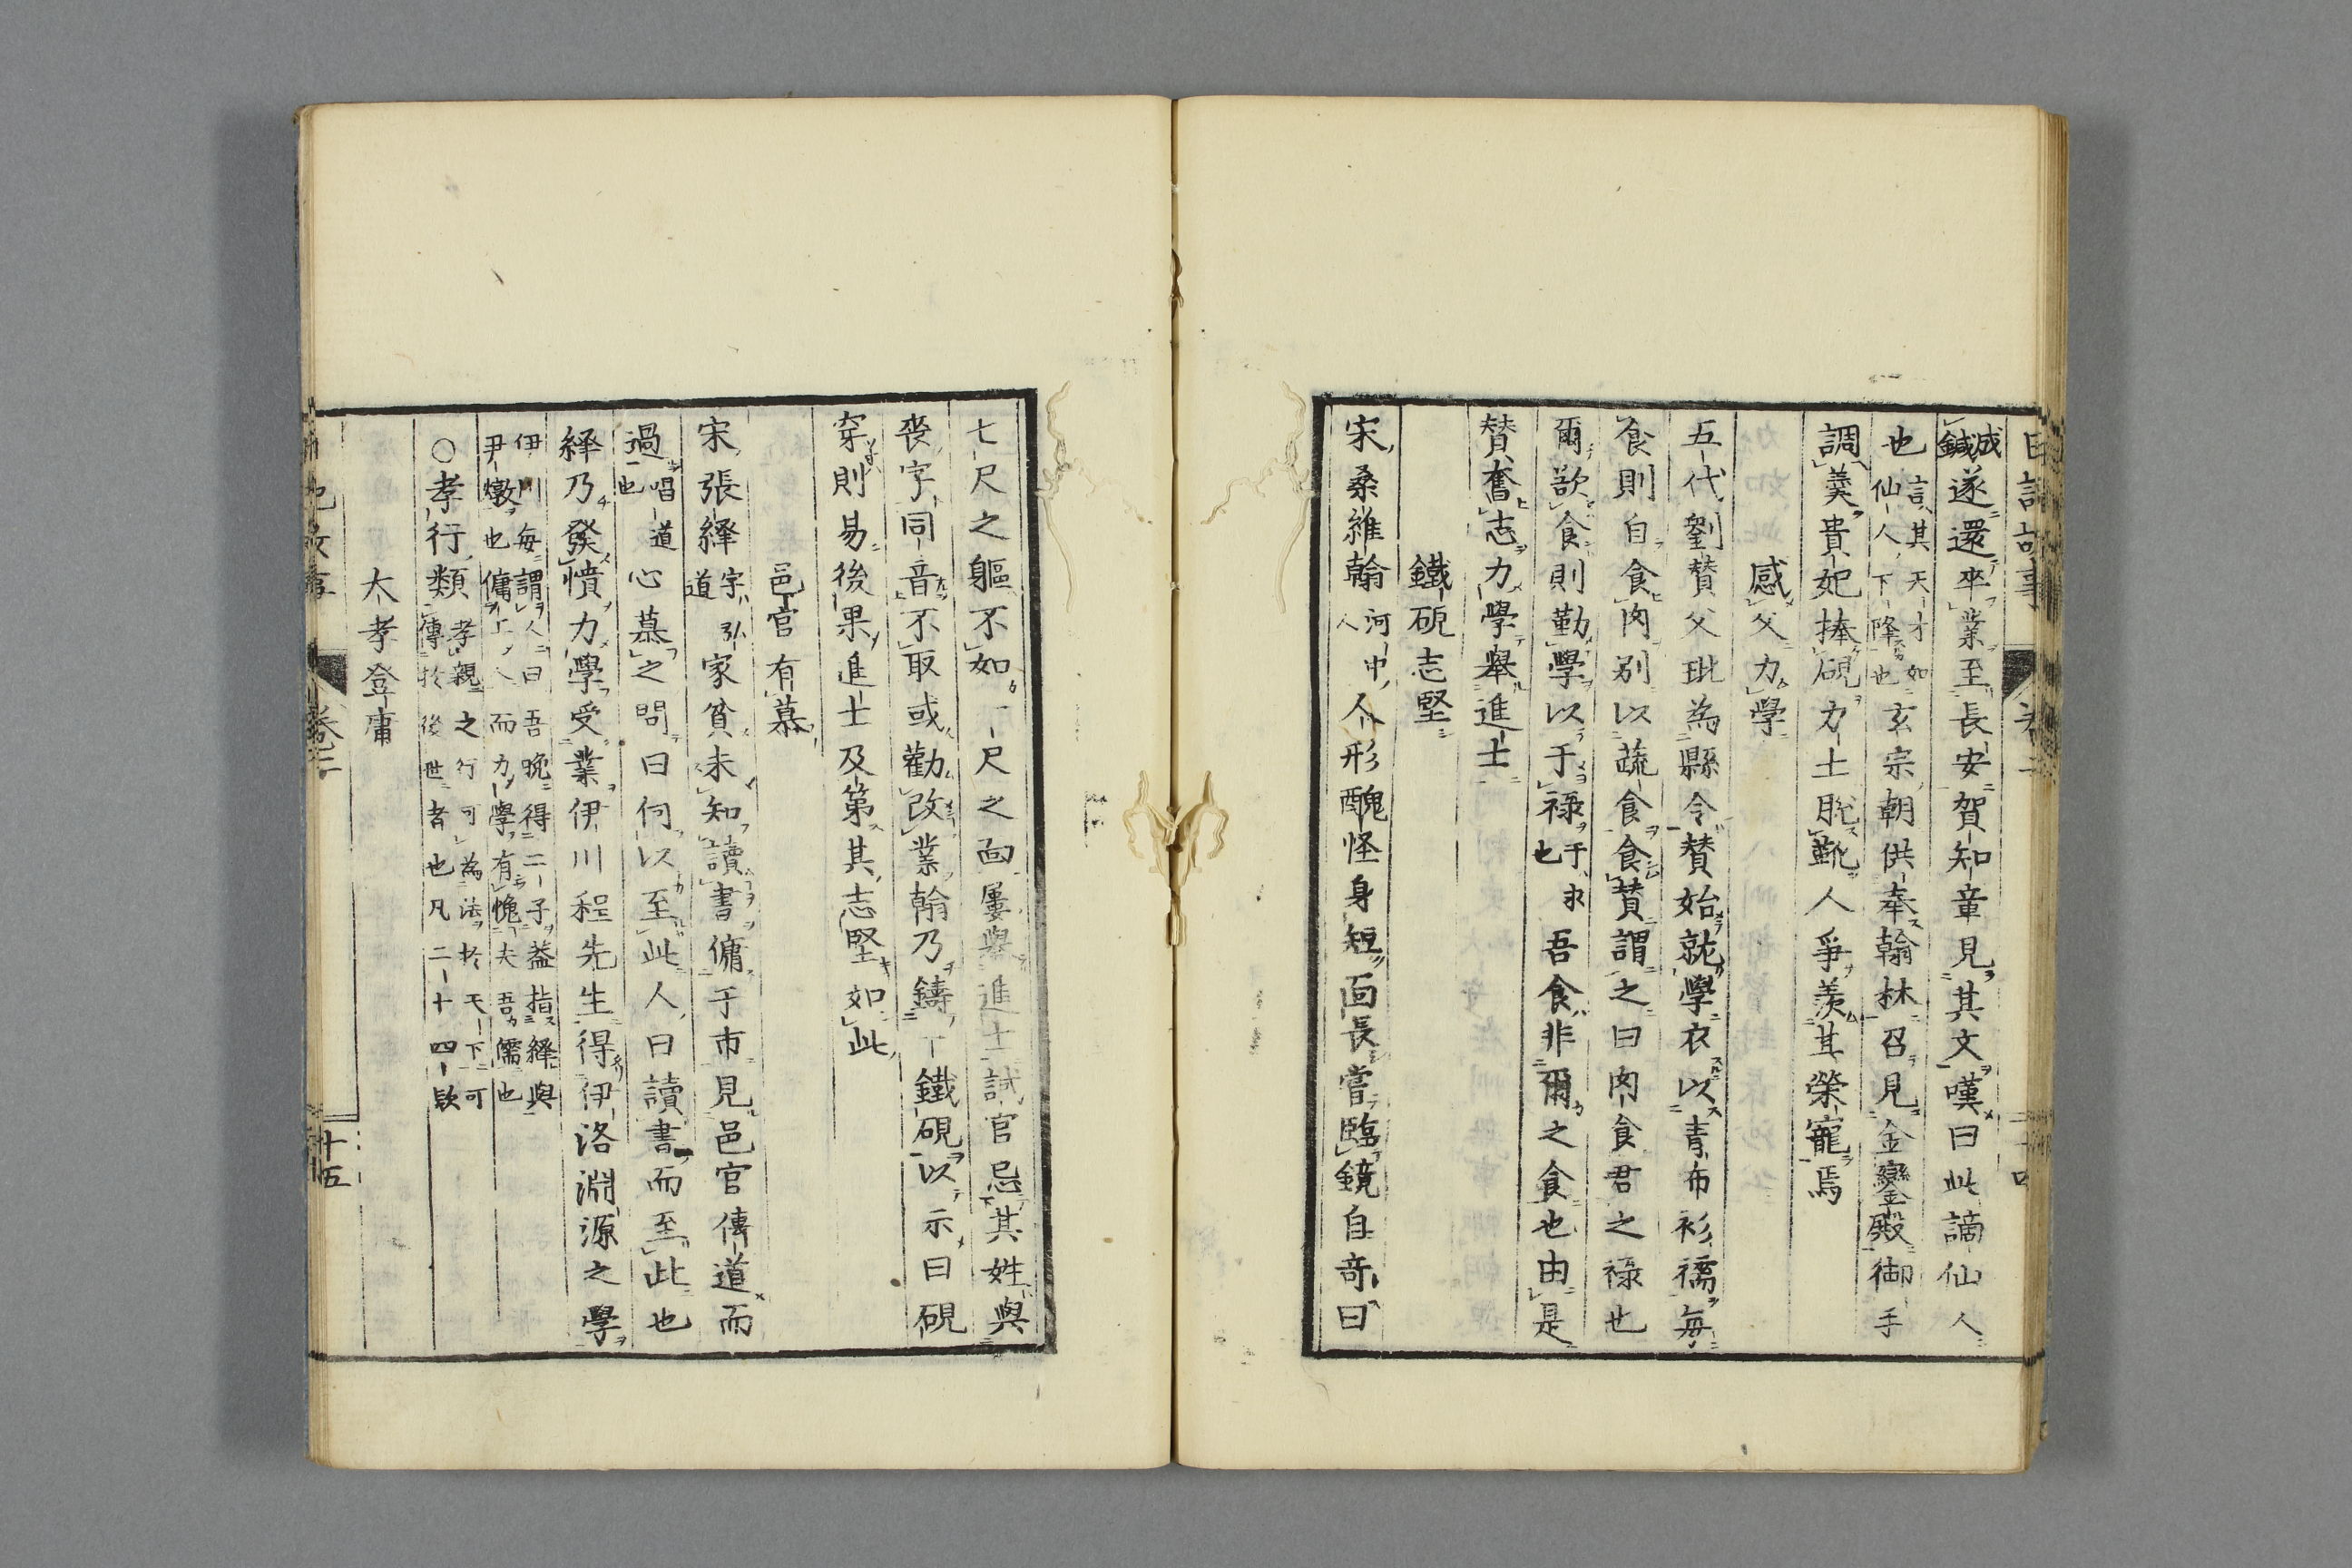 日記故事 卷二 二十四
成鍼遂還卒業至長安賀知章見其文嘆曰此謫仙人
也言其天才如仙人下降也玄宗朝供奉翰林召見金鑾殿御手
調羹貴妃捧硯力士脫靴人爭羨其榮寵焉
感父力學
五代劉贊父玭為縣令贊始就學衣以青布衫襦每
食則自食肉別以蔬食食贊謂之曰肉食君之祿也
爾欲食則勤學以于祿于求也吾食非爾之食也由是
贊奮志力學舉進士
鐵硯志堅
宋桑維翰河中人人形醜怪身短面長嘗臨鏡自奇曰
七尺之軀不如一尺之面屢舉進士試官忌其姓與
喪字同音不取或勸改業翰乃鑄一鐵硯以示曰硯
穿則易後果進士及第其志堅如此
邑官有慕
宋張繹字道弘家貧未知讀書傭于市見邑官傳道而
過唱道也心慕之問曰何以至此人曰讀書而至此也
繹乃發憤力學受業伊川程先生得伊洛淵源之學
伊川每謂人曰吾晚得二子蓋指繹與尹燉也傭工人而力學有愧夫吾儒也
○孝行類孝親之行可為法於天下可傳於後世者也凡二十四款
大孝登庸
卷二 十五